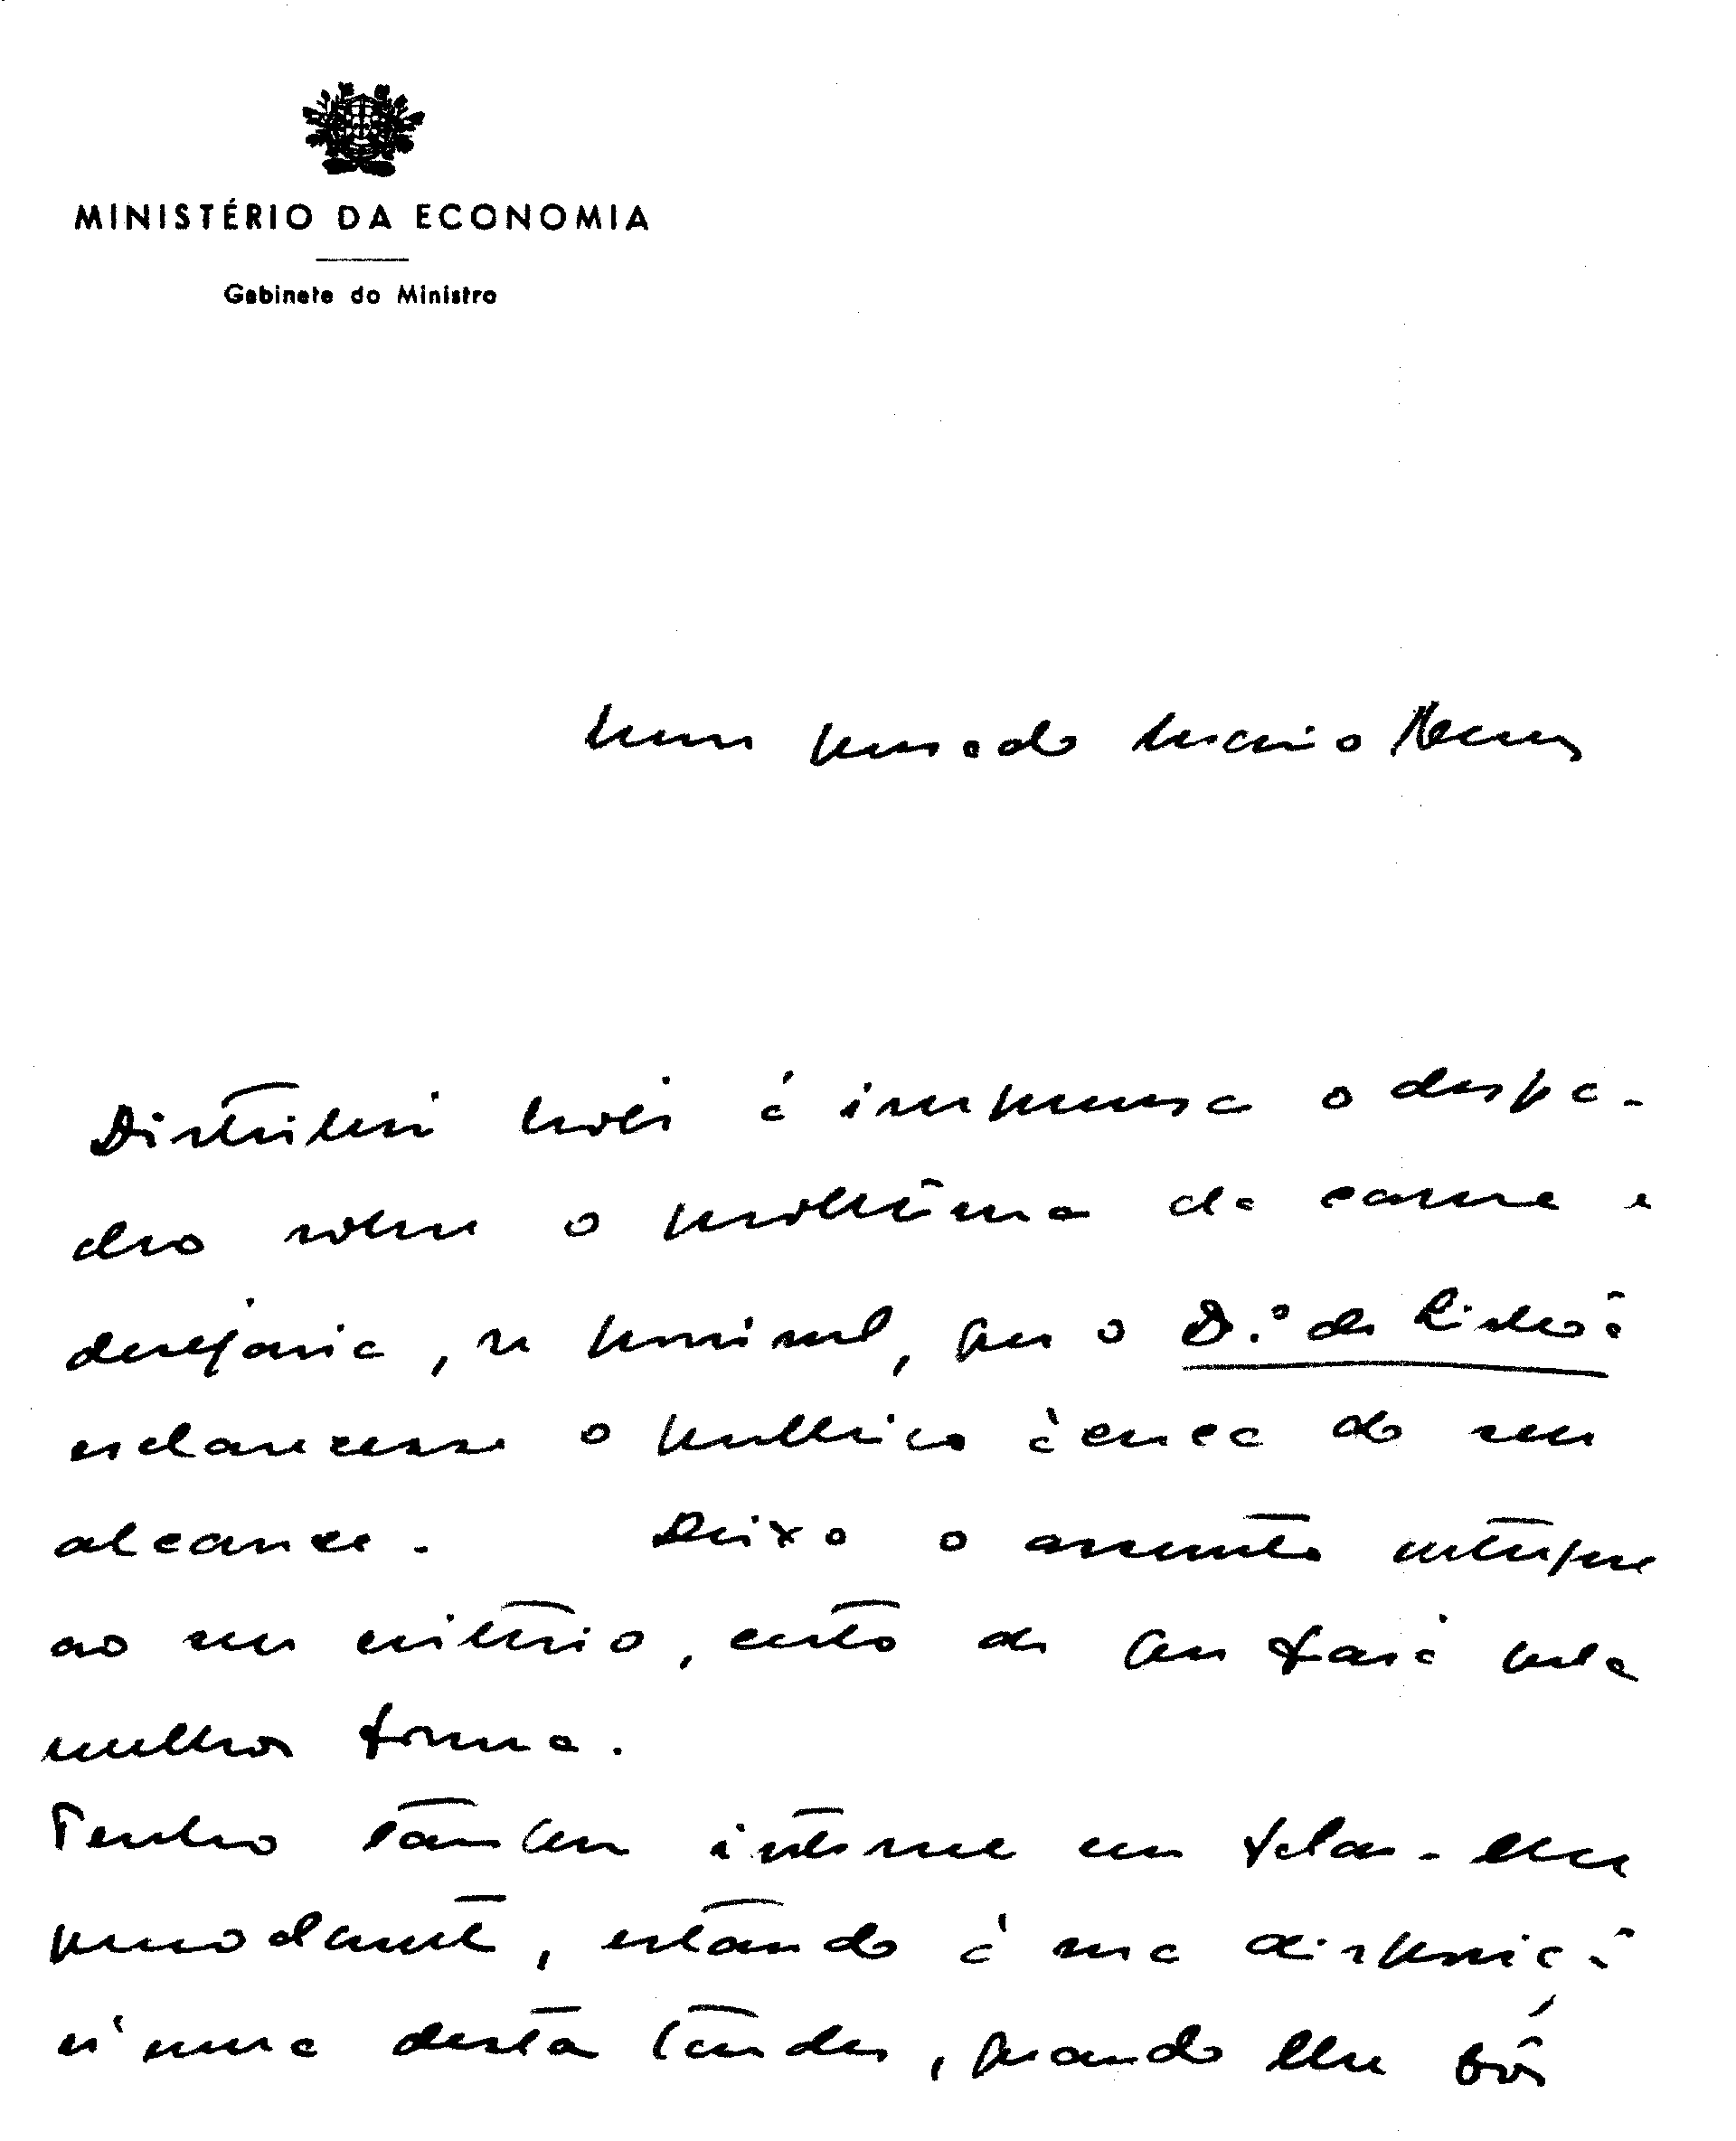 MINISTÉRIO DA ECONOMIA
Gabinete do Ministro
Meu prezado Mário Neves
Distribui hoje à imprensa o despa-
cho sobre o problema da carne e
desejaria, se possivel, que o D.º de Lisboa
esclarecesse o publico àcerca do seu
alcance. Deixo o assunto entregue
ao seu critério, certo de que fará pela
melhor forma.
Tenho tambem interesse em falar-lhe
prossimamente, estando à sua disposição
n'uma desta tardes, quando lhe fôr